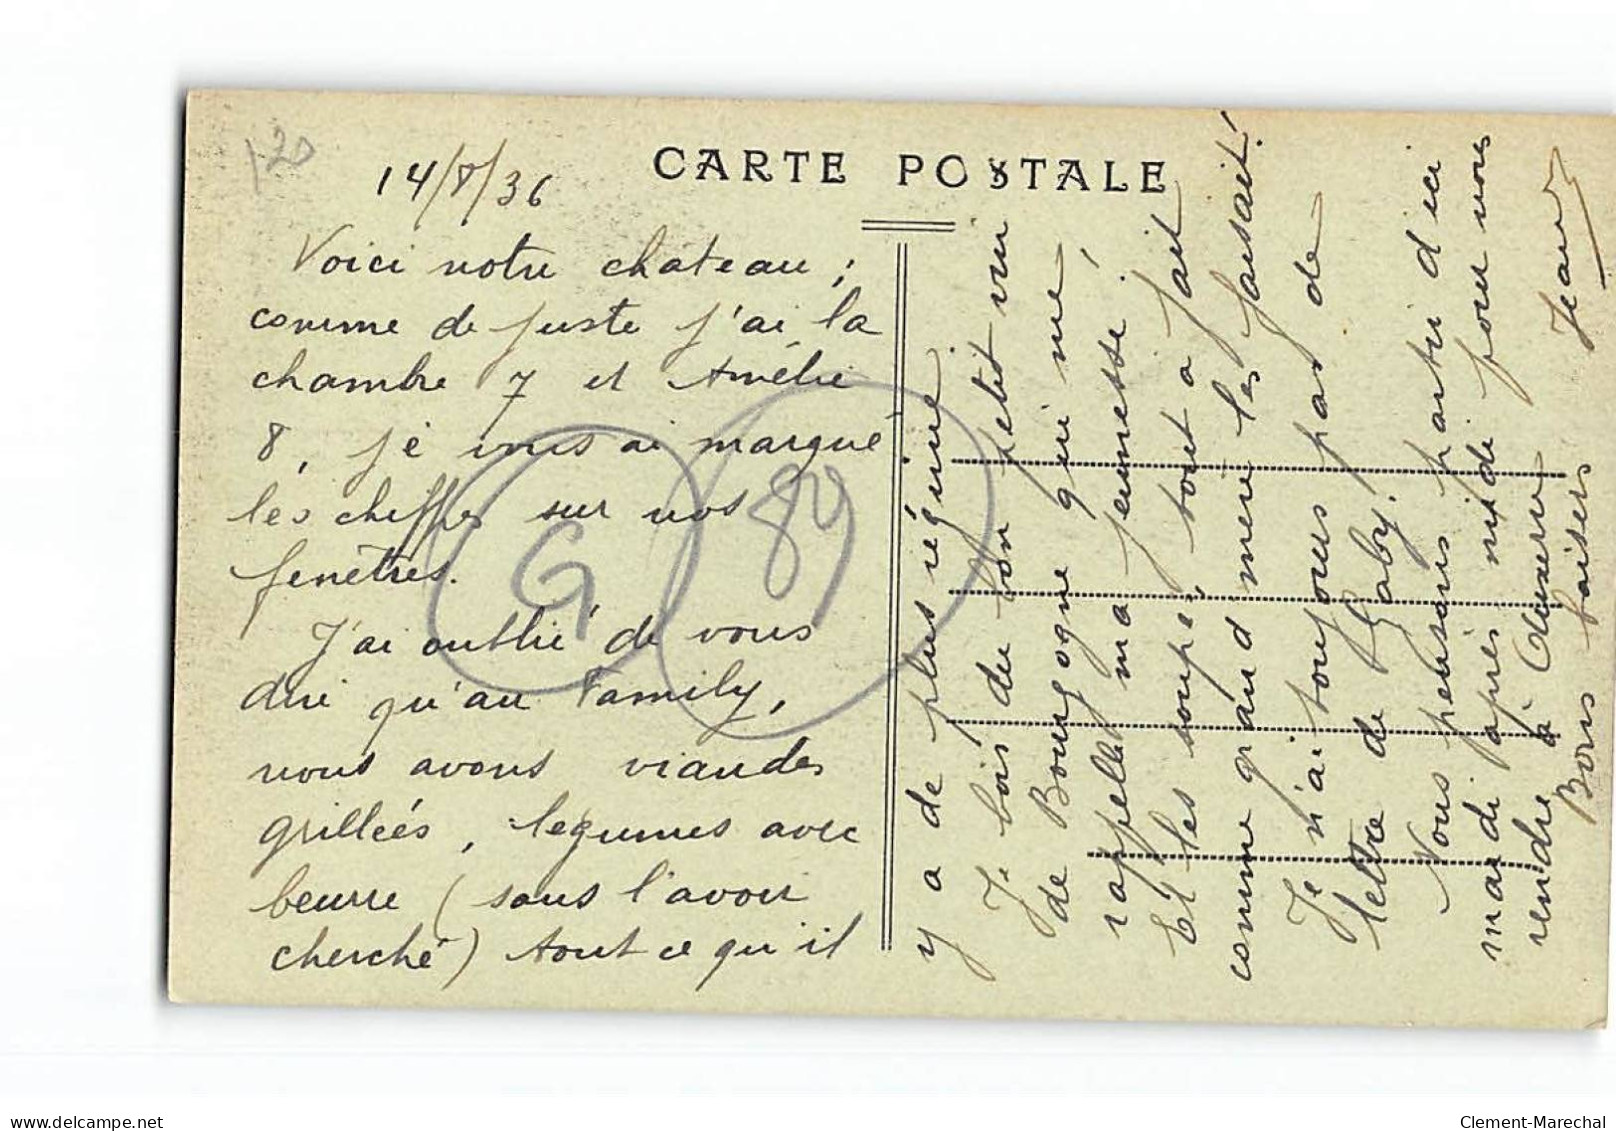 120
14/8/36
CARTE POSTALE
Voici notre château ;
comme de juste j'ai la
chambre 7 et Amélie
8, je vous ai marqué
les chiffres sur nos
fenêtres.
J'ai oublié de vous
dire qu'au Family,
nous avons viandes
grilleés, legumes avec
beurre (sans l'avoir
cherché) tout ce qu'il
G
89
y a de plus régime
Je bois du bon petit vin
de Bourgogne qui me
rappelle ma jeunesse !
Et les soupé tout a fait
comme grand mere les faisait !
Je n'ai toujours pas de
lettre de Gaby.
Nous pensons partir d'ici
mardi après midi pour nous
rendre à Auxerre
Bons baisers Jean
delcampe.net
Clement-Marechal